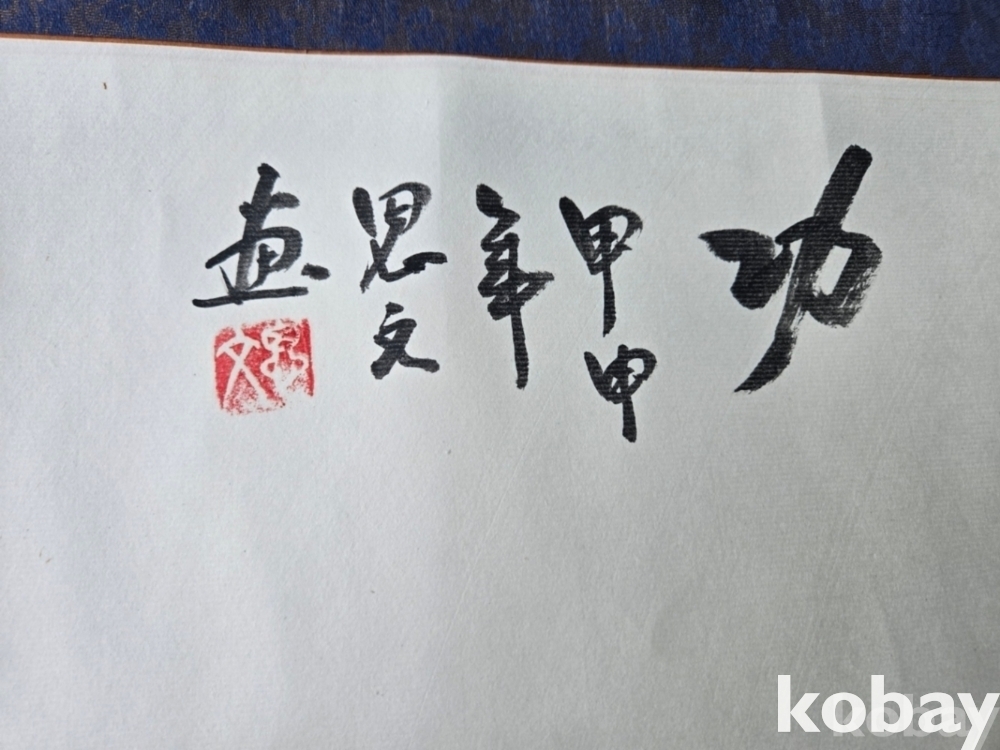 功
甲申
年
思文
画
思文
kobay